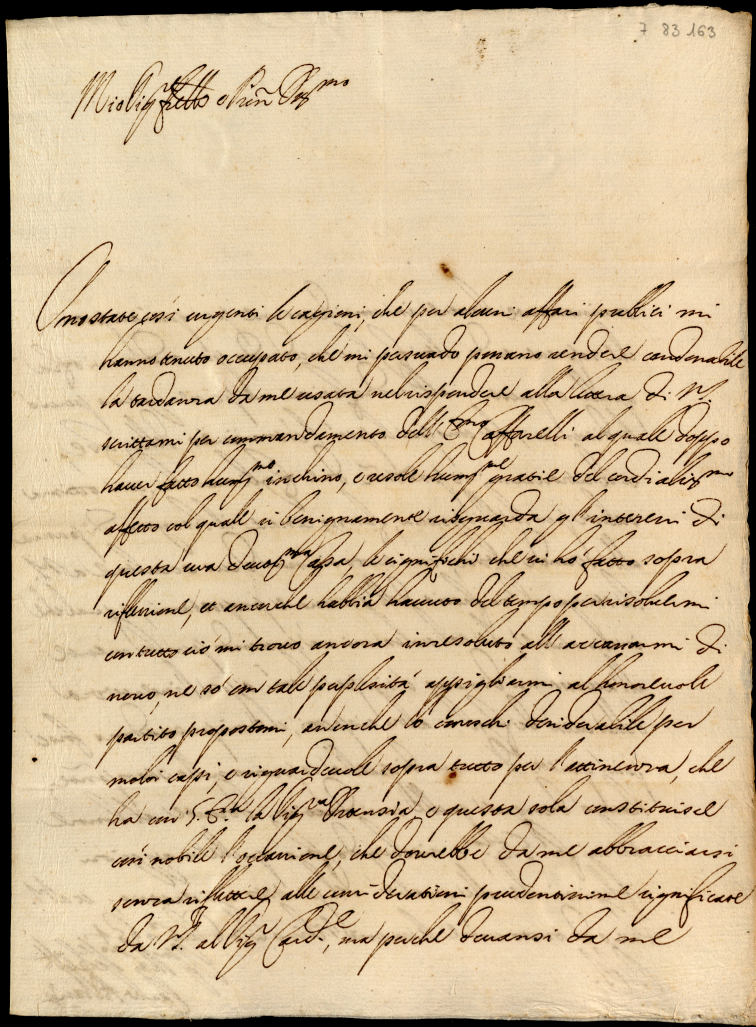 7 83 163
Mio Sig.r fratello e Pron Oss.mo
Sono state così urgenti le cagioni, che per alcuni affari publici mi
hanno tenuto occupato, che mi persuado possano rendere condonabile
la tardanza da me usata nel rispondere alla lettera di V.S.
scrittami per commandamento dell'Em.mo Caffarelli al quale doppo
haver fatto hum.mo inchino, e rese le hum.me gratie del cordialiss.mo
affetto col quale si benignamente risguarda gl'interessi di
questa sua devot.ma Casa, le significhi che vi hò fatto sopra
riflessione, et ancorche habbia havuto del tempo per risolvermi
con tutto ciò mi trovo ancora inresoluto all'accasarmi di
novo, ne sò con tale perplessità appigliarmi al honorevole
partito propostomi, ancorche lo conoschi desiderabile per
molti capi, e riguardevole sopra tutto per l'attinenza, che
ha con S. Em.za la Sig.ra Ortensia, e questa sola constituisce
così nobile l'occasione, che dovrebbe da me abbracciarsi
senza riflettere alle considerationi prudentissime significate
da V.S. al Sig.r Card.le, ma perche devonsi da me